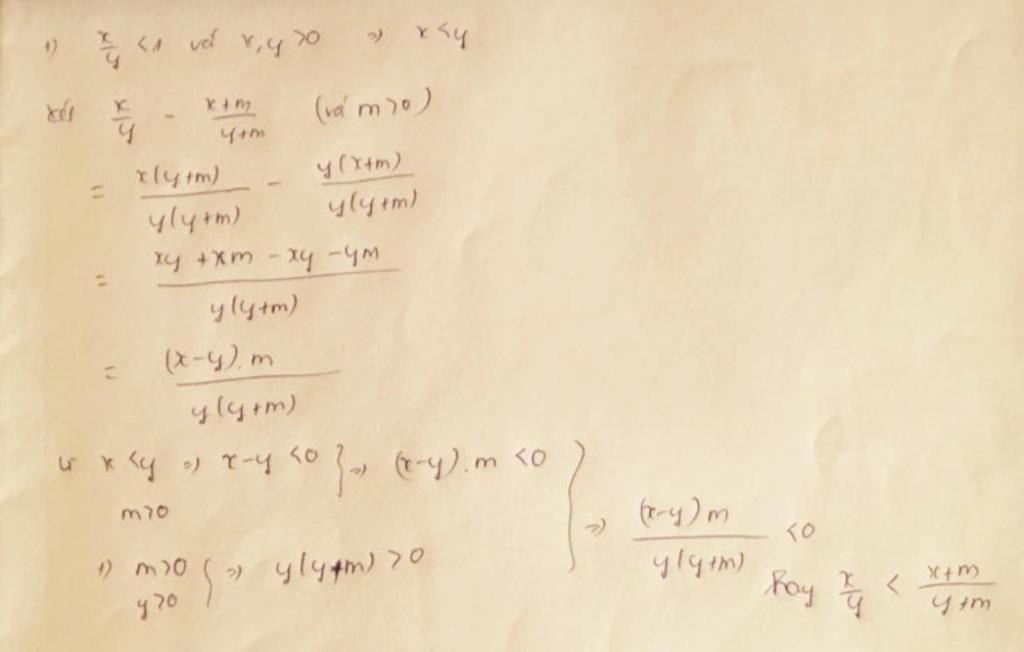 1) x/y < 1 với x, y > 0 => x < y
xét x/y - (x+m)/(y+m) (với m > 0)
= x(y+m)/y(y+m) - y(x+m)/y(y+m)
= (xy + xm - xy - ym)/y(y+m)
= (x-y).m/y(y+m)
x < y => x-y < 0 } => (x-y).m < 0 }
m > 0
=> (x-y)m/y(y+m) < 0
1) m > 0 } => y(y+m) > 0
y > 0
Hay x/y < (x+m)/(y+m)